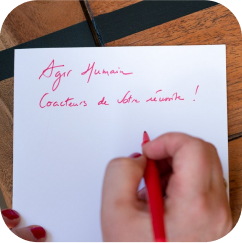 Agir Humain
Coacteurs de Votre réussite !